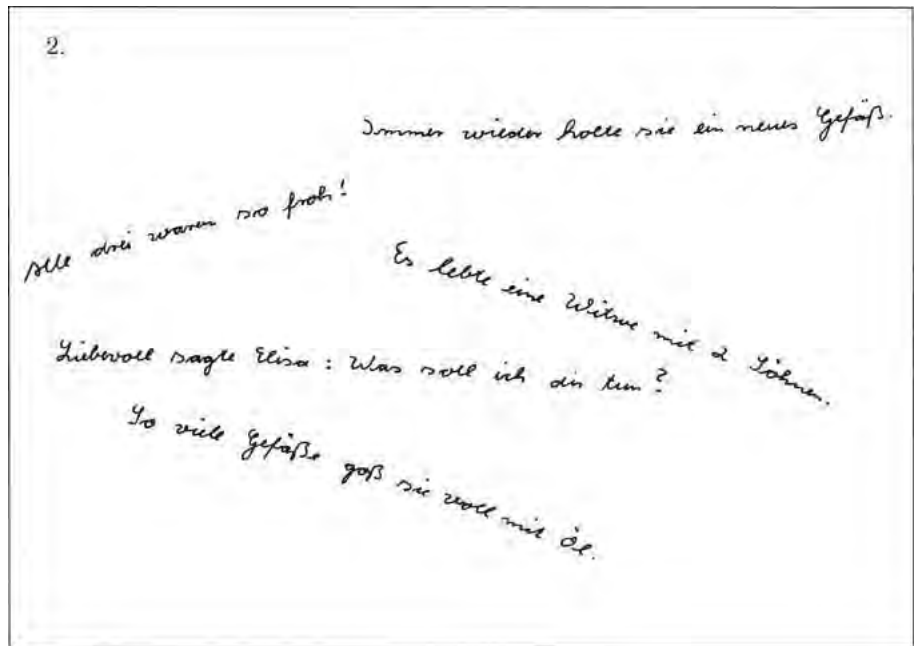 2.
Immer wieder holte sie ein neues Gefäß.
Alle drei waren so froh!
Es lebte eine Witwe mit 2 Söhnen.
Liebevoll sagte Elisa: Was soll ich dir tun?
So viele Gefäße goß sie voll mit Öl.